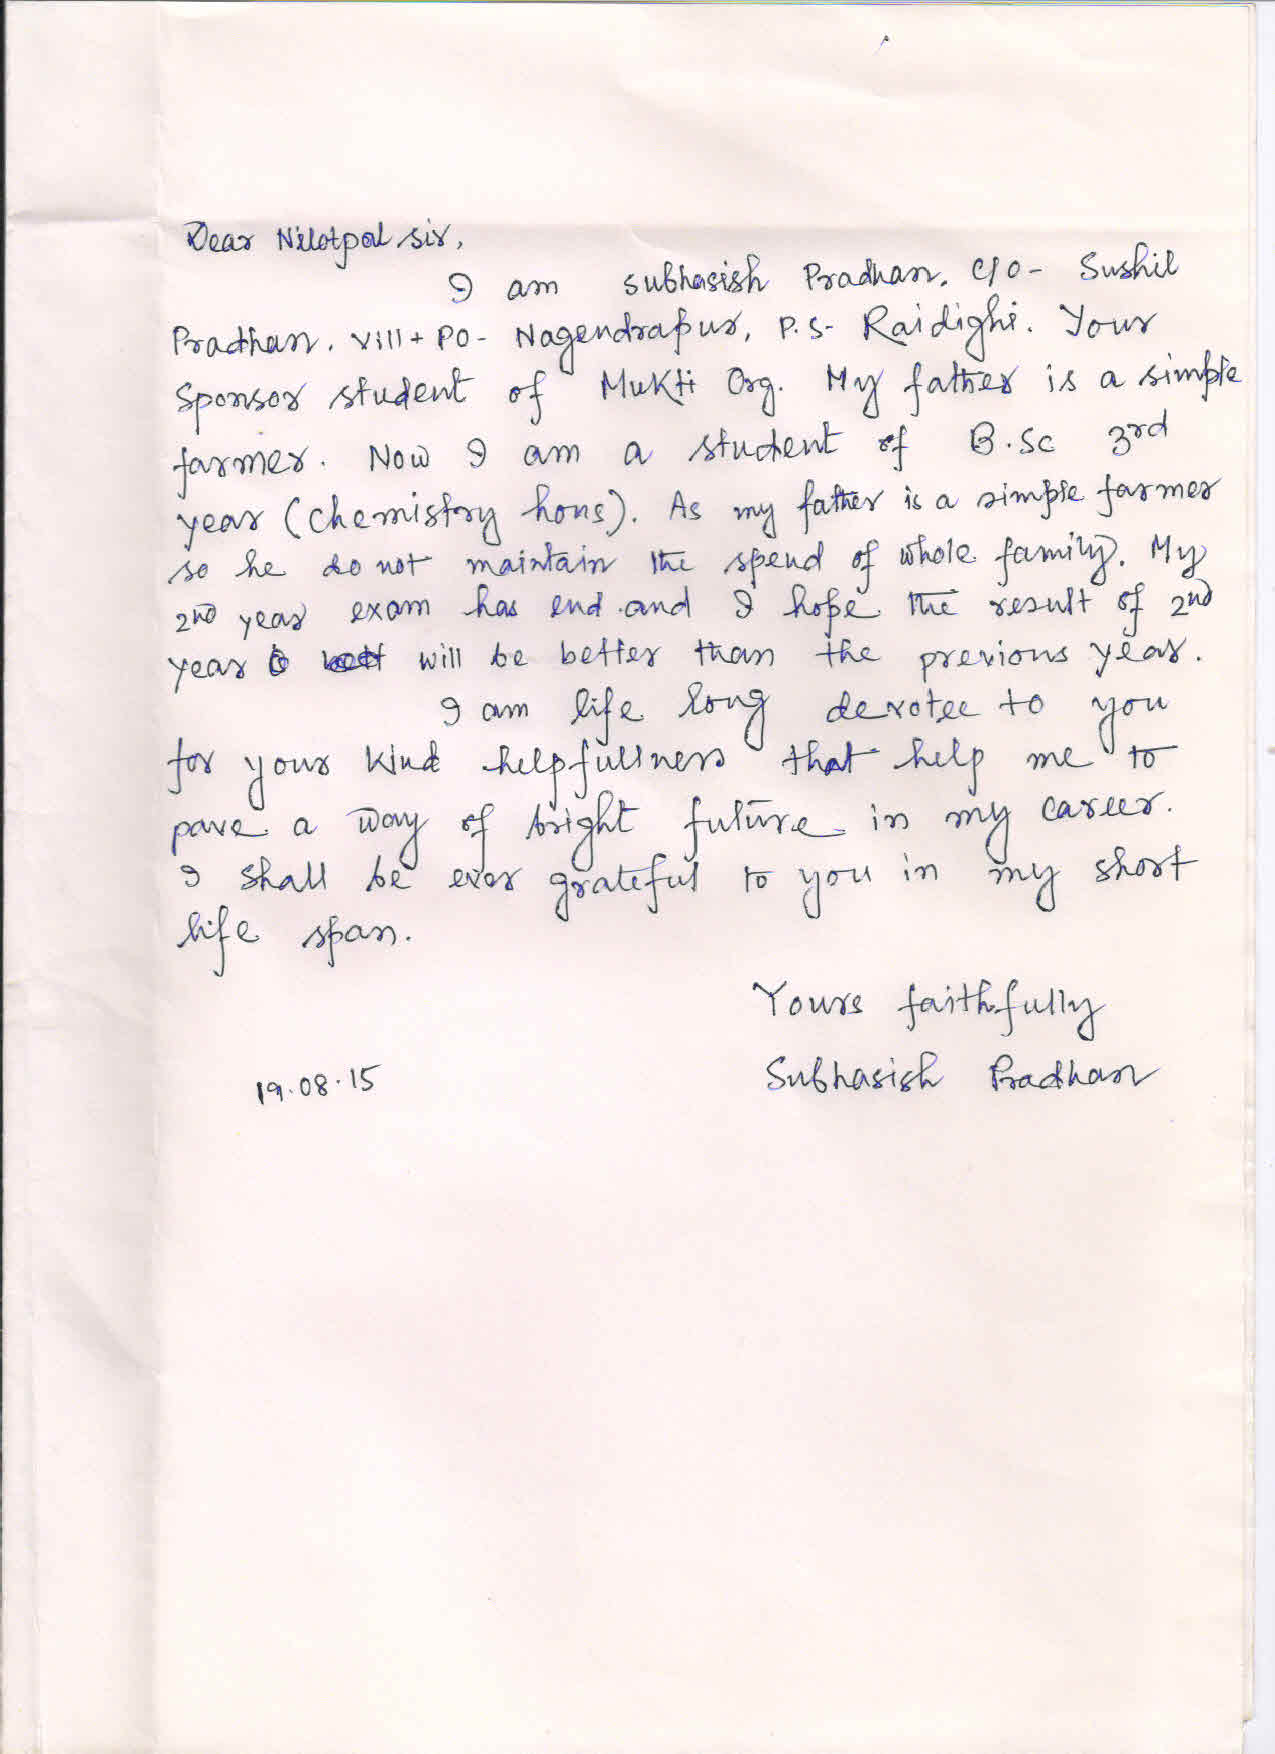 Dear Nilotpal sir,
I am subhasish Pradhan. C/O- Sushil
Pradhan. Vill + PO- Nagendrapur, P.S- Raidighi. Your
sponsor student of Mukti Org. My father is a simple
farmer. Now I am a student of B.Sc 3rd
year (chemistry hons). As my father is a simple farmer
so he do not maintain the spend of whole family. My
2nd year exam has end and I hope the result of 2nd
year will be better than the previous year.
I am life long devotee to you
for your kind helpfullness that help me to
pave a way of bright future in my career.
I shall be ever grateful to you in my short
life span.
Yours faithfully
19.08.15 Subhasish Pradhan